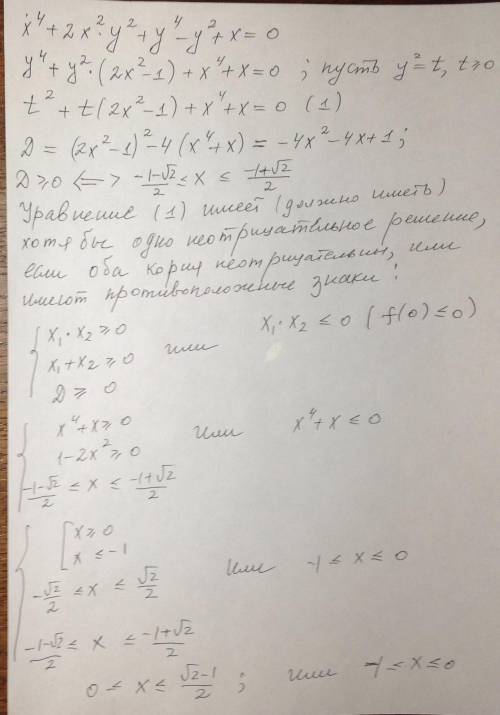 x⁴ + 2x²·y² + y⁴ - y² + x = 0
y⁴ + y²·(2x²-1) + x⁴ + x = 0 ; пусть y² = t, t ≥ 0
t² + t(2x²-1) + x⁴ + x = 0 (1)
D = (2x²-1)² - 4(x⁴+x) = -4x² - 4x + 1;
D ≥ 0 <=> (-1-√2)/2 ≤ x ≤ (-1+√2)/2
Уравнение (1) имеет (должно иметь)
хотя бы одно неотрицательное решение,
если оба корня неотрицательны, или
имеют противоположные знаки:
{ x₁·x₂ ≥ 0 или x₁·x₂ ≤ 0 (f(0) ≤ 0)
x₁+x₂ ≥ 0
D ≥ 0
{ x⁴+x ≥ 0 или x⁴+x ≤ 0
1-2x² ≥ 0
(-1-√2)/2 ≤ x ≤ (-1+√2)/2
{ [ x ≥ 0
x ≤ -1 или -1 ≤ x ≤ 0
-√2/2 ≤ x ≤ √2/2
(-1-√2)/2 ≤ x ≤ (-1+√2)/2
0 ≤ x ≤ (√2-1)/2 ; или -1 ≤ x ≤ 0